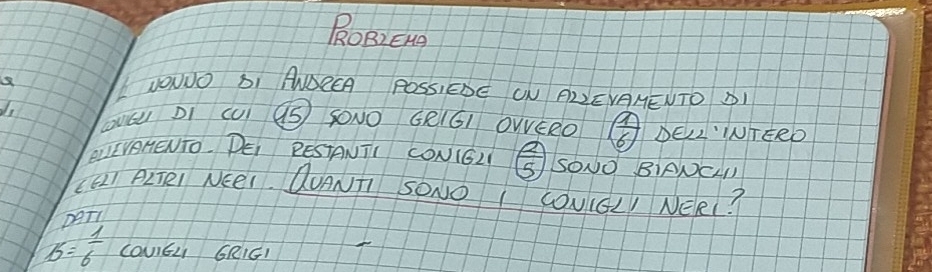 PROBLEMA
L NONNO DI ANDREA POSSIEDE UN ALLEVAMENTO DI
CONIGLI DI CUI 15 SONO GRIGI OVVERO 1/6 DELL'INTERO
ALLEVAMENTO. DEI RESTANTI CONIGLI 2/5 SONO BIANCHI
E GLI ALTRI NERI. QUANTI SONO I CONIGLI NERI?
DATI
15 = 1/6 CONIGLI GRIGI